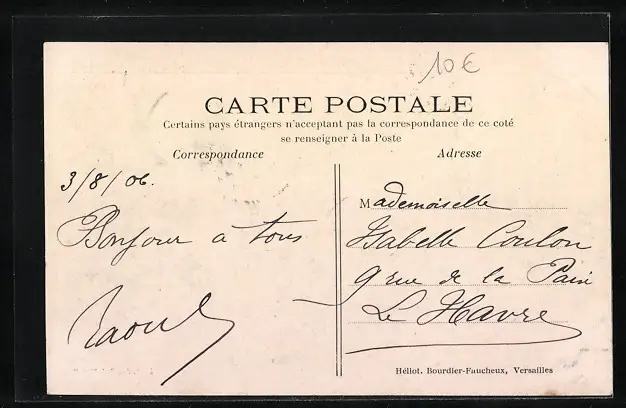 10€
CARTE POSTALE
Certains pays étrangers n'acceptent pas la correspondance de ce coté
se renseigner à la Poste
Correspondance
3/8/06.
Bonjour à tous
Raoul
Adresse
Mademoiselle
Isabelle Coulon
9 rue de la Paix
Le Havre
Héliot. Bourdier-Faucheux, Versailles